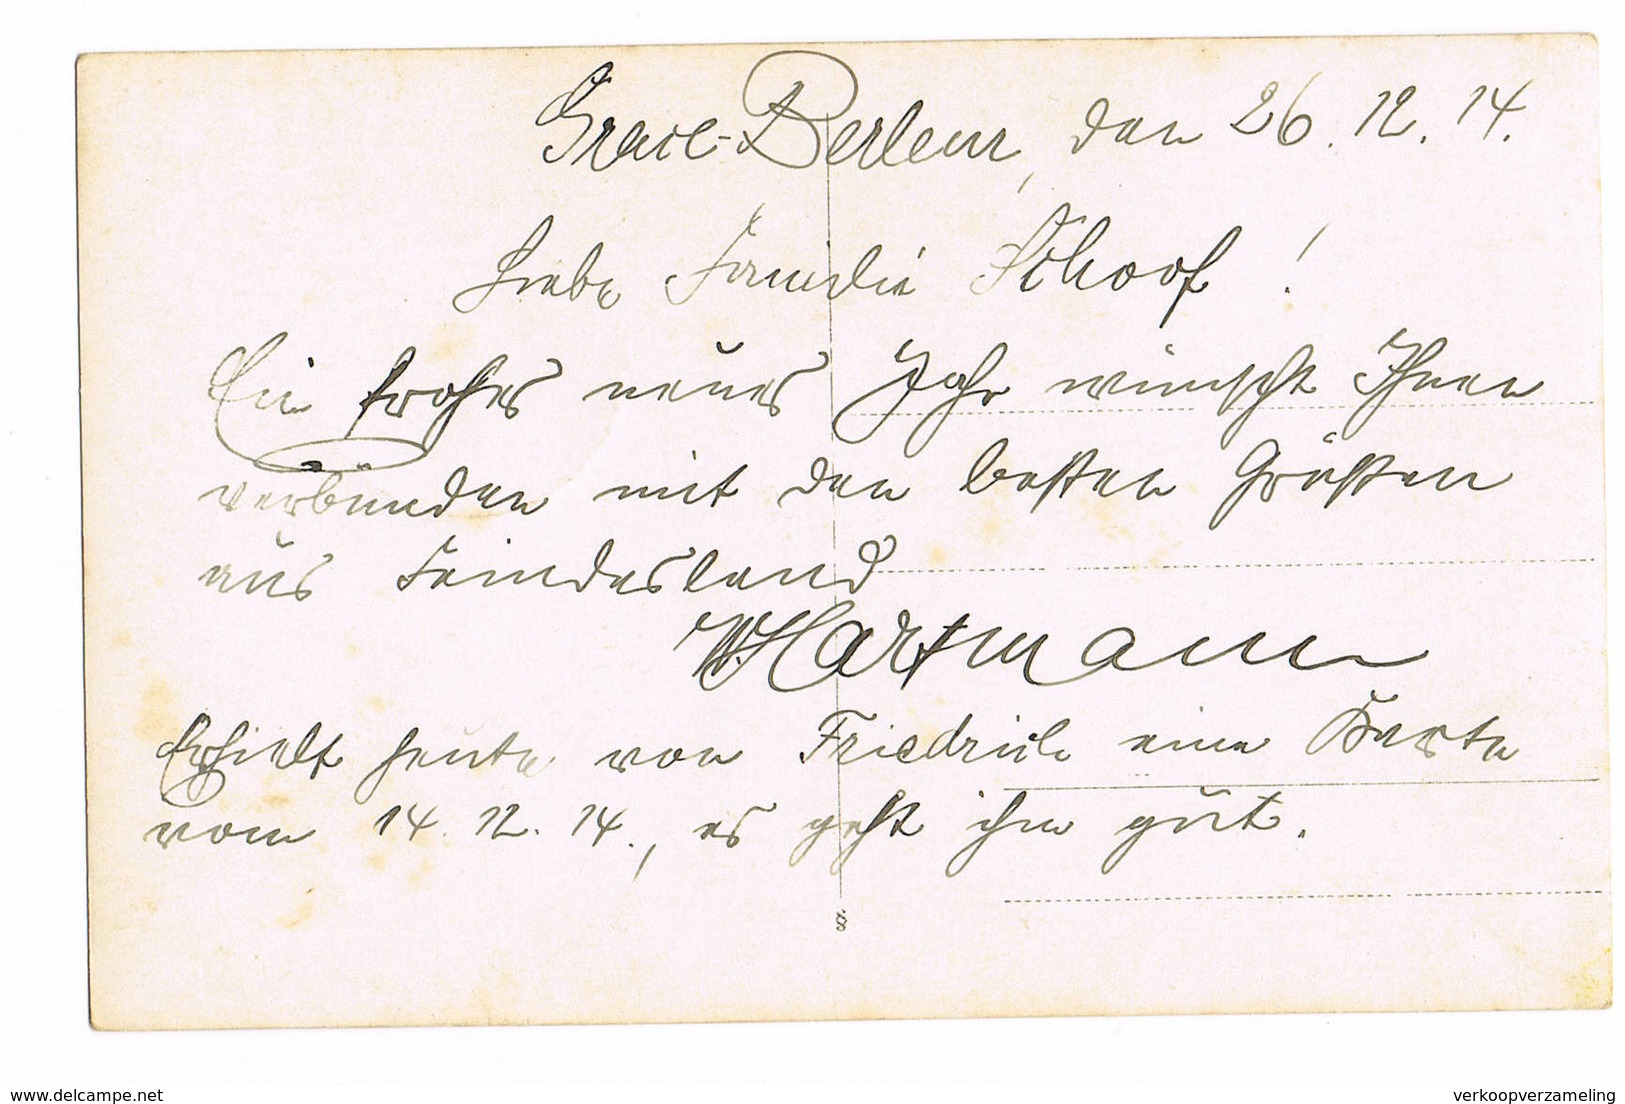 Grace-Berleur, den 26.12.14.
Liebe Familie Schoof!
Ein frohes neues Jahr wünscht Ihnen
verbunden mit den besten Grüßen
aus Feindesland
W. Hartmann
Erhielt heute von Friedrich eine Karte
vom 14.12.14., es geht ihm gut.
§
delcampe.net
verkoopverzameling